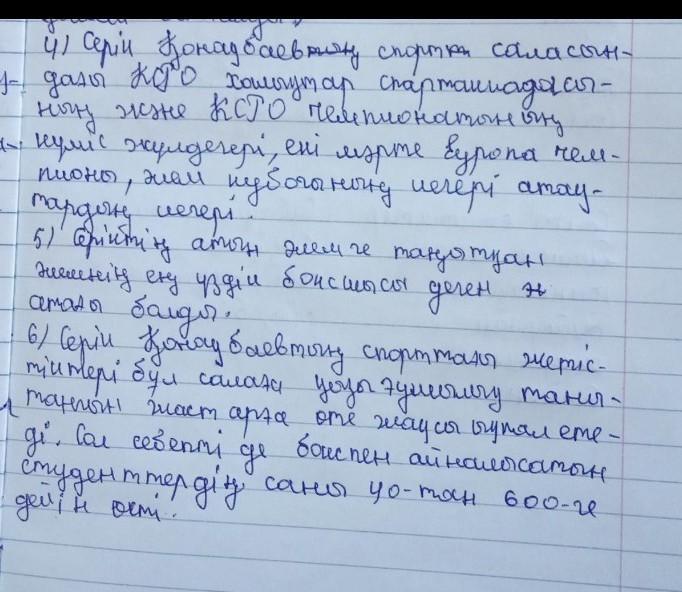 4) Серік Қонақбаевтың спорттқ саласын-
дағы КСРО халықтар спартакиадасы-
ның және КСРО чемпионатының
күміс жүлдегері, екі мәрте Еуропа чем-
пионы, әлем кубогының иегері атау-
тардың иегері.
5) Серіктің атын әлемге танытқан
әлемнің ең үздік боксшысы деген
атағы болды.
6) Серік Қонақбаевтың спорттағы жетіс-
тіктері бұл салаға қызығушылығы таны-
танлын жастарға өте жақсы ықпал ете-
ді. Сол себепті де бокспен айналысатын
студенттердің саны 40-тан 600-ге
дейін өсті.